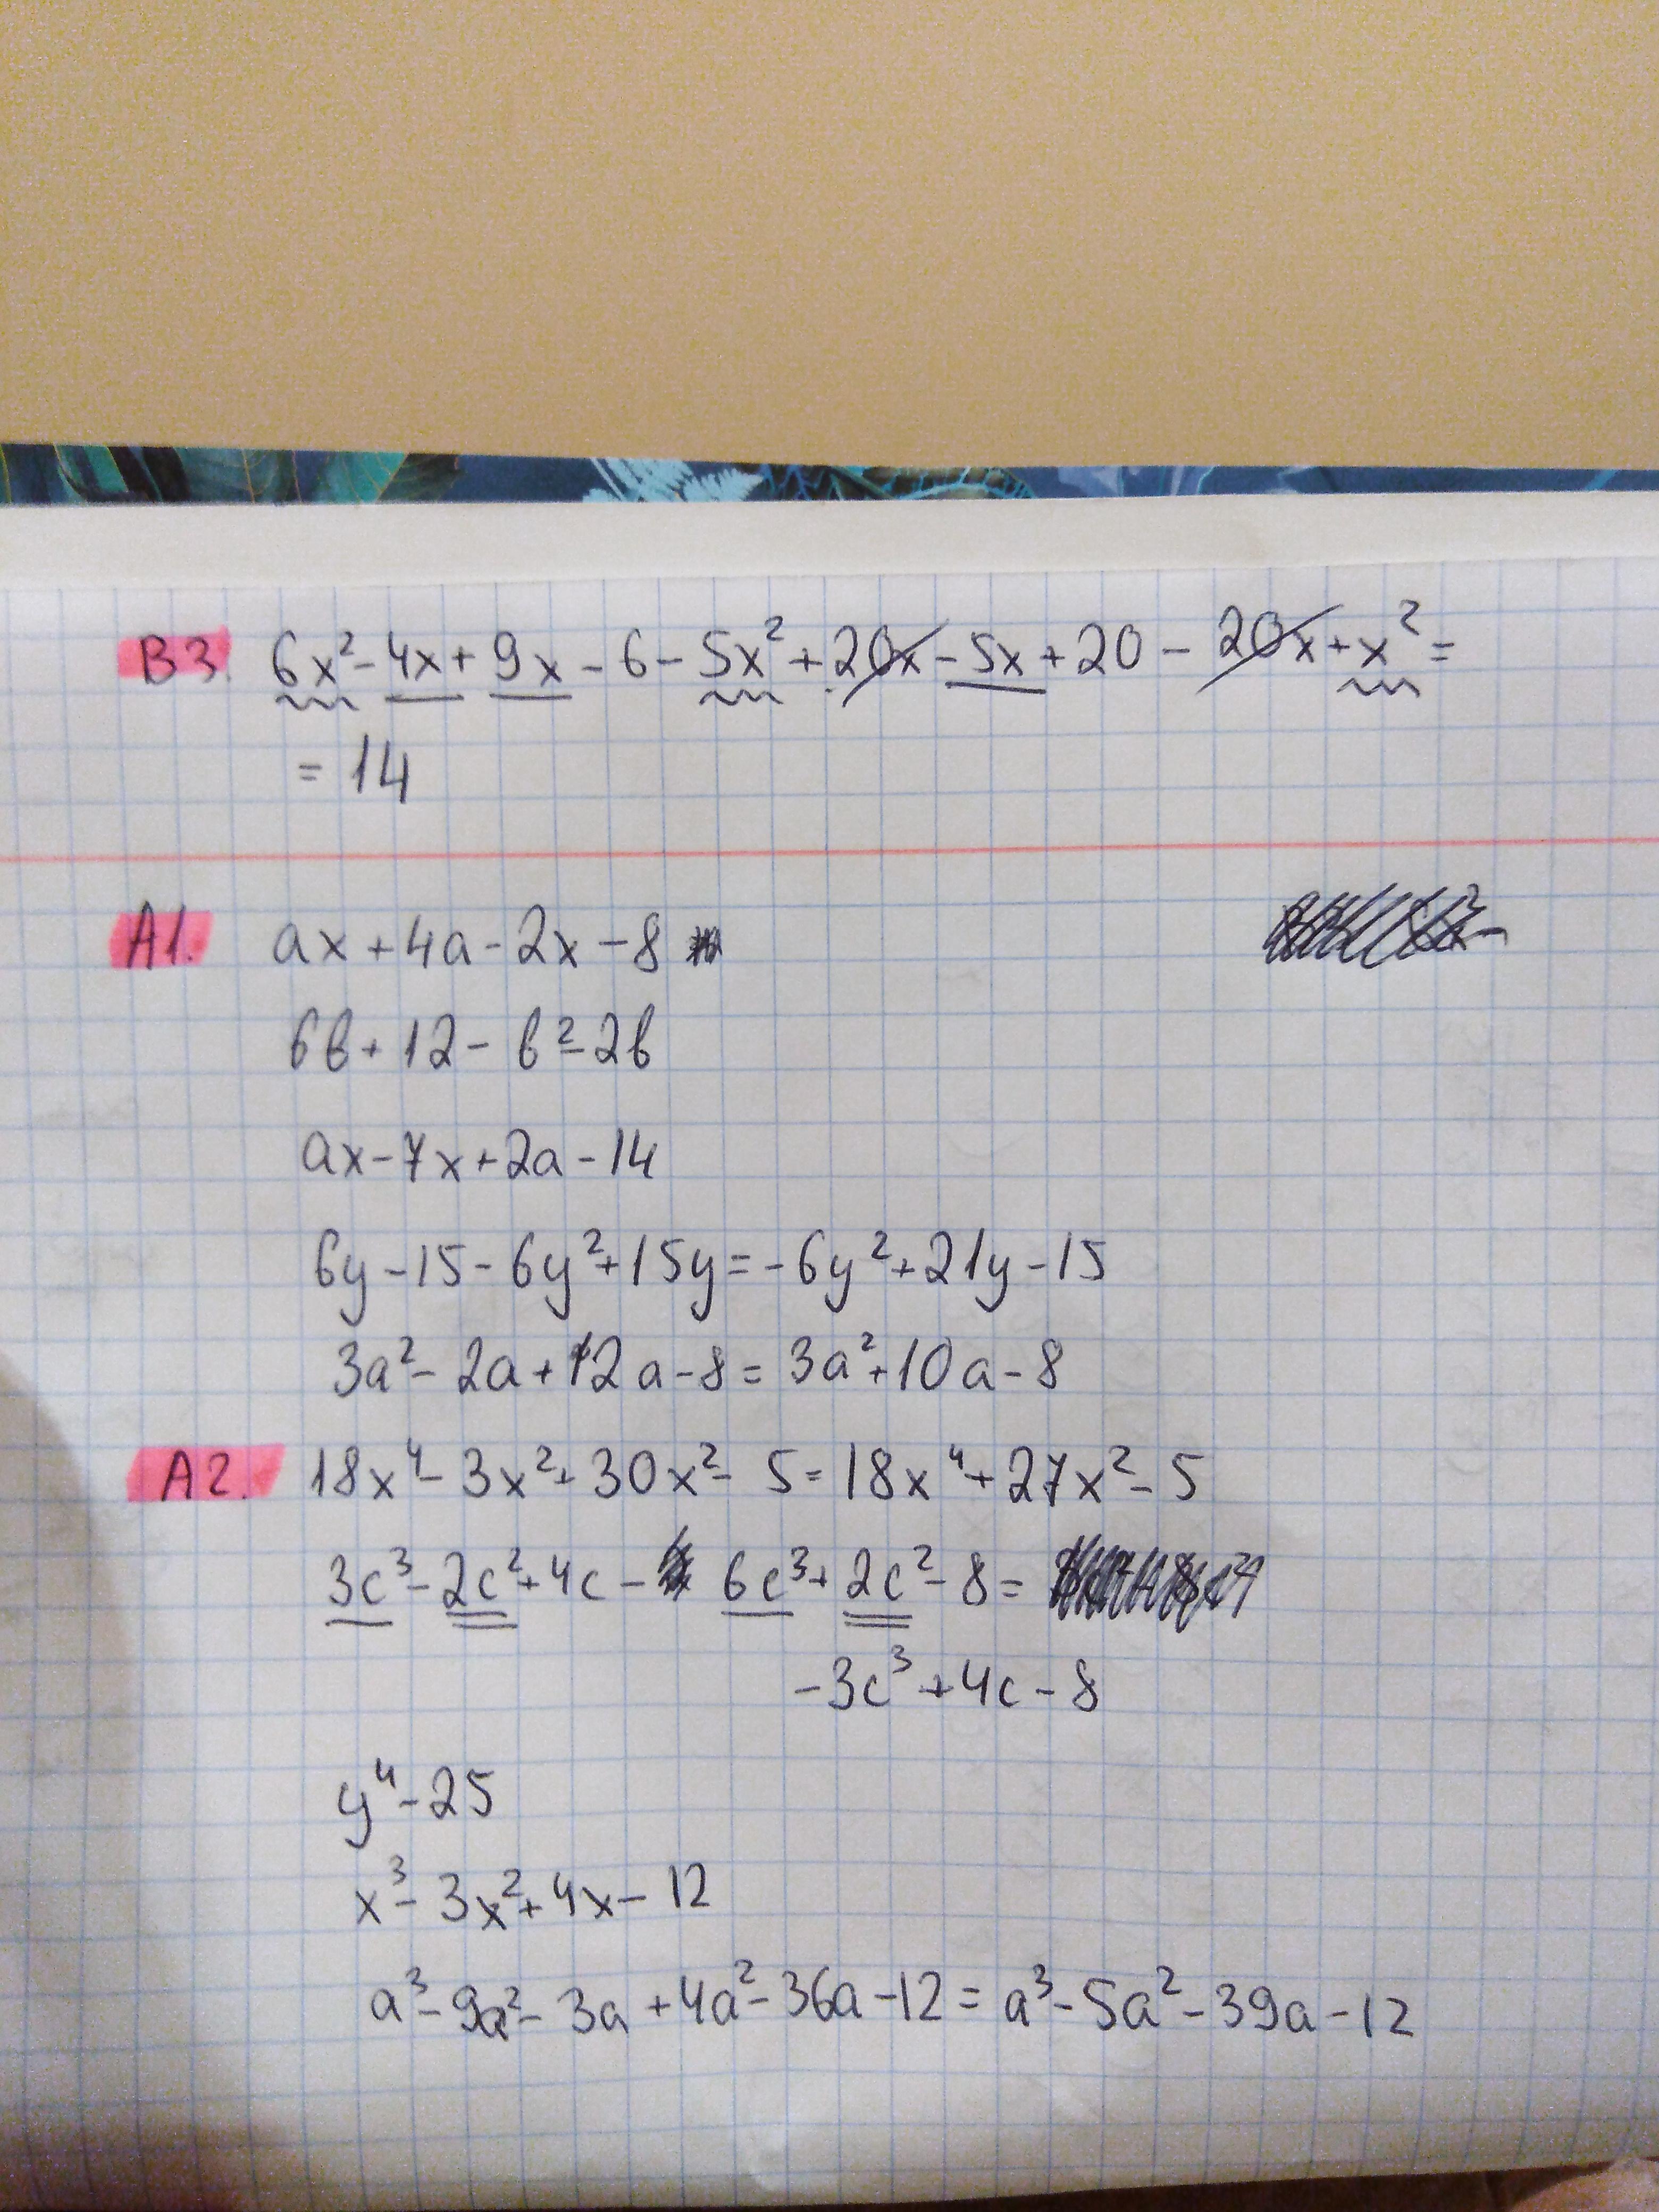 B3. 6x² - 4x + 9x - 6 - 5x² + 20x - 5x + 20 - 20x + x² =
= 14
A1. ax + 4a - 2x - 8
6b + 12 - b² - 2b
ax - 7x + 2a - 14
6y - 15 - 6y² + 15y = -6y² + 21y - 15
3a² - 2a + 12a - 8 = 3a² + 10a - 8
A2. 18x⁴ - 3x² + 30x² - 5 = 18x⁴ + 27x² - 5
3c³ - 2c² + 4c - 6c³ + 2c² - 8 =
-3c³ + 4c - 8
y⁴ - 25
x³ - 3x² + 4x - 12
a³ - 9a² - 3a + 4a² - 36a - 12 = a³ - 5a² - 39a - 12